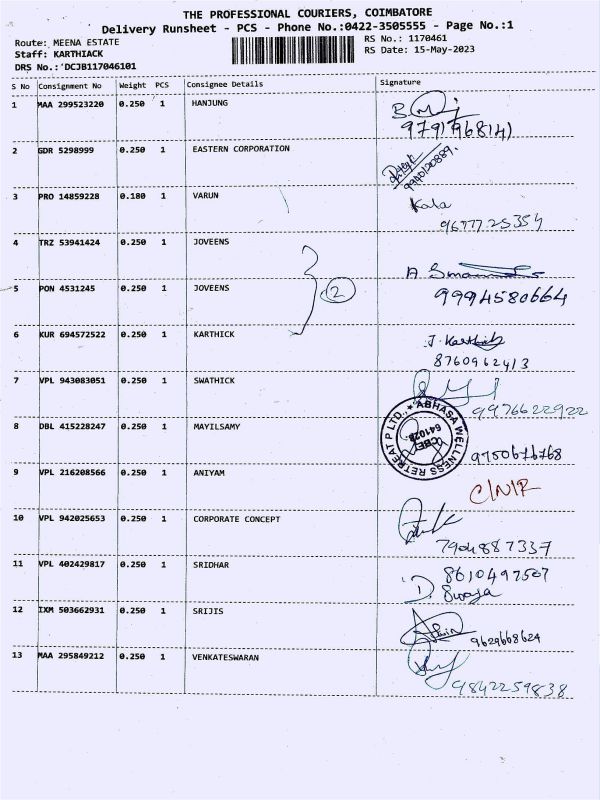 THE PROFESSIONAL COURIERS, COIMBATORE
Delivery Runsheet - PCS - Phone No.:0422-3505555 - Page No.:1
Route: MEENA ESTATE RS No.: 1170461
Staff: KARTHIACK RS Date: 15-May-2023
DRS No.:'DCJB117046101
S No Consignment No Weight PCS Consignee Details Signature
1 MAA 299523220 0.250 1 HANJUNG
9791968141
2 GDR 5298999 0.250 1 EASTERN CORPORATION
9940120889.
3 PRO 14859228 0.180 1 VARUN Kala
9677725354
4 TRZ 53941424 0.250 1 JOVEENS
5 PON 4531245 0.250 1 JOVEENS 2 9994580664
6 KUR 694572522 0.250 1 KARTHICK J. Karthick
8760962413
7 VPL 943083051 0.250 1 SWATHICK
9976622922
8 DBL 415228247 0.250 1 MAYILSAMY
ABHASA WELLNESS RETREAT P LTD.,
CBE
641028.
9750676768
9 VPL 216208566 0.250 1 ANIYAM C/NIR
10 VPL 942025653 0.250 1 CORPORATE CONCEPT
7904887337
11 VPL 402429817 0.250 1 SRIDHAR 8610497507
D.
12 IXM 503662931 0.250 1 SRIJIS
9629668624
13 MAA 295849212 0.250 1 VENKATESWARAN
9842259838